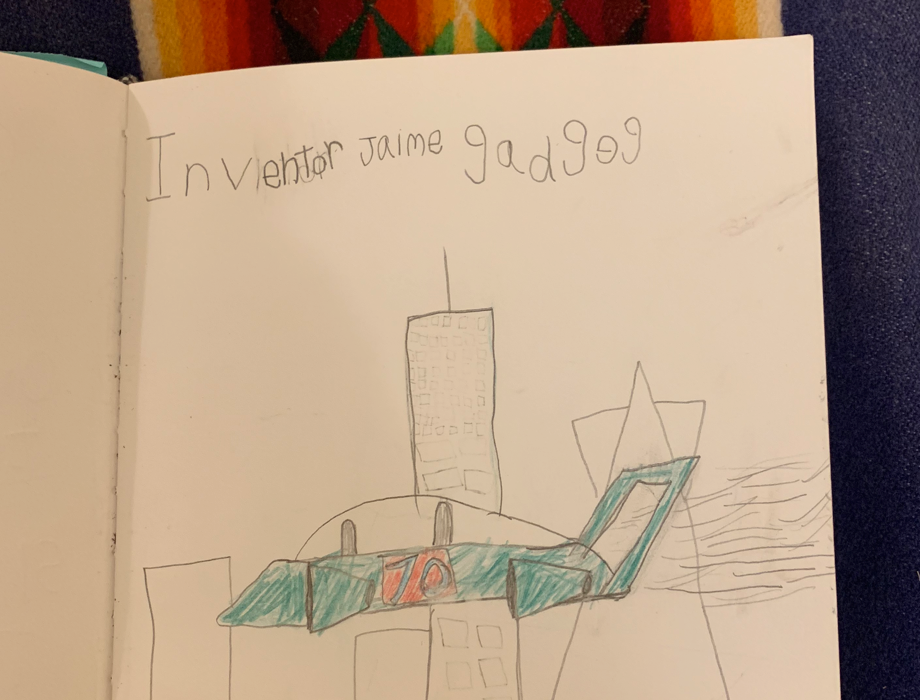 Inventor Jaime gadgeg
70